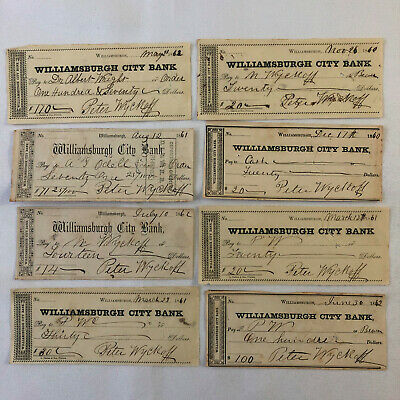 No. WILLIAMSBURGH, May 1862
WILLIAMSBURGH CITY BANK
Pay to Dr Albert Wright or Order
One Hundred & Seventy Dollars
$170 Peter Wyckoff
No. WILLIAMSBURGH, Nov 26 1860
WILLIAMSBURGH CITY BANK,
Pay to N Wyckoff or Bearer
Twenty Dollars
$20 Peter Wyckoff
No. Williamsburgh, Aug 12 1861
Williamsburgh City Bank,
Pay to A G Odell or Order
Seventy One 21/100 Dollars
$71 21/100 Peter Wyckoff
No. WILLIAMSBURGH, Dec 11th 1860
WILLIAMSBURGH CITY BANK,
Pay to Cash
Twenty Dollars,
$20 Peter Wyckoff
No. Williamsburgh, July 10 186
Williamsburgh City Bank,
Pay to N Wyckoff
Fourteen Dollars
$14 Peter Wyckoff
No. WILLIAMSBURGH, March 1861
WILLIAMSBURGH CITY BANK
Pay to P W
Twenty Dollars
$20 Peter Wyckoff
No. WILLIAMSBURGH, March 23 1861
WILLIAMSBURGH CITY BANK
Pay to P W
Thirty Dollars
$30 Peter Wyckoff
No. WILLIAMSBURGH, June 30 1862
WILLIAMSBURGH CITY BANK,
Pay to P W or Bearer
One hundred Dollars
$100 Peter Wyckoff